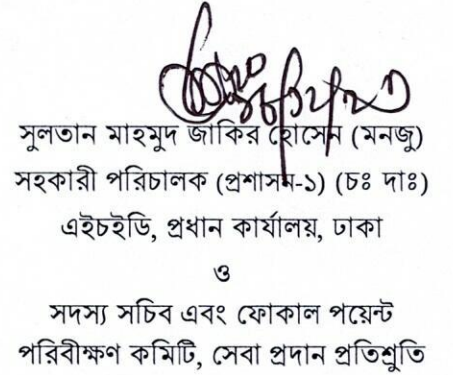 সুলতান মাহমুদ জাকির হোসেন (মনজু)
সহকারী পরিচালক (প্রশাসন-১) (চঃ দাঃ)
এইচইডি, প্রধান কার্যালয়, ঢাকা
ও
সদস্য সচিব এবং ফোকাল পয়েন্ট
পরিবীক্ষণ কমিটি, সেবা প্রদান প্রতিশ্রুতি